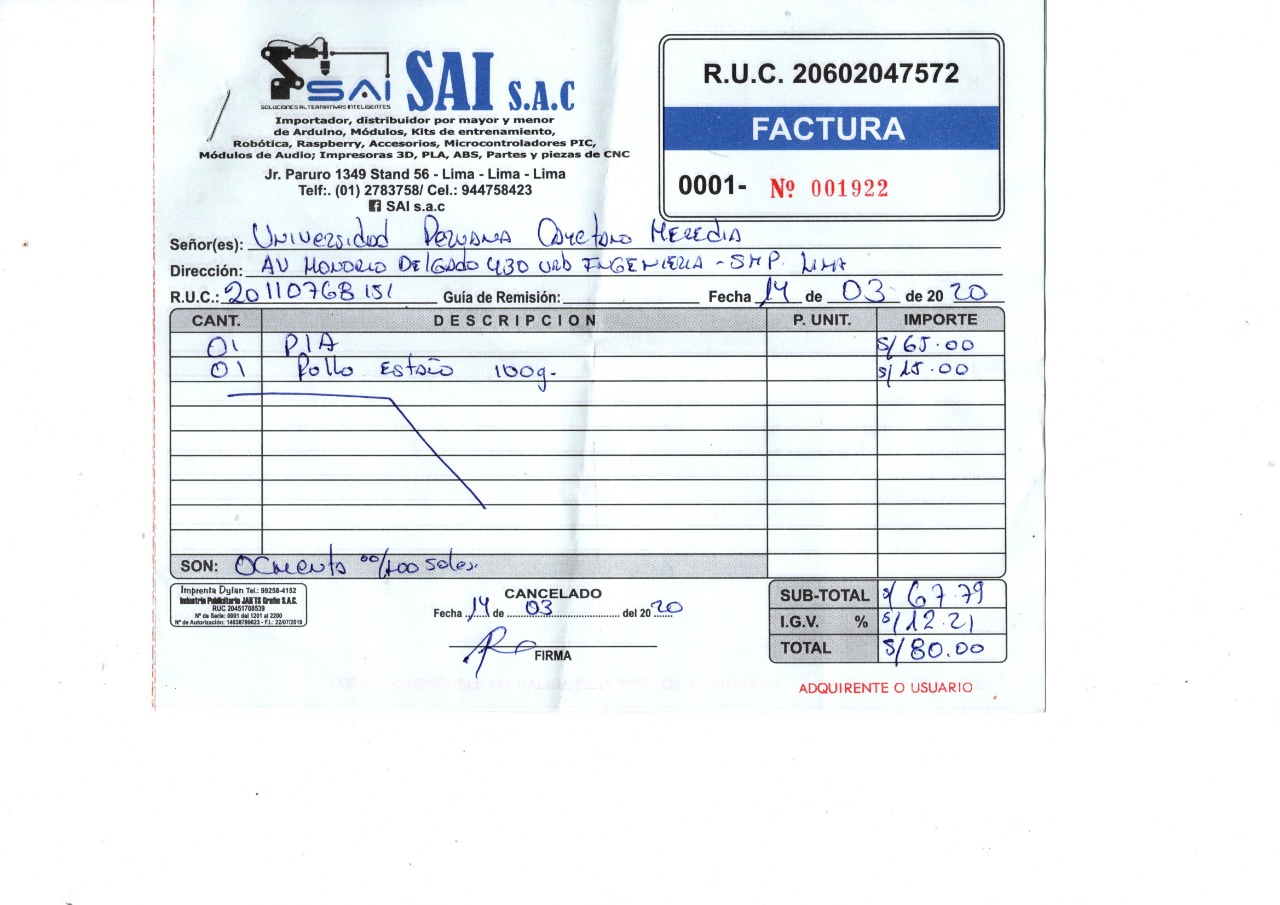 SAI
SOLUCIONES ALTERNATIVAS INTELIGENTES
SAI S.A.C
Importador, distribuidor por mayor y menor
de Arduino, Módulos, Kits de entrenamiento,
Robótica, Raspberry, Accesorios, Microcontroladores PIC,
Módulos de Audio; Impresoras 3D, PLA, ABS, Partes y piezas de CNC
Jr. Paruro 1349 Stand 56 - Lima - Lima - Lima
Telf:. (01) 2783758/ Cel.: 944758423
SAI s.a.c
R.U.C. 20602047572
FACTURA
0001- Nº 001922
Señor(es): Universidad Peruana Cayetano Heredia
Dirección: AV HONORIO DELGADO 430 URB INGENIERIA - SMP. LIMA
R.U.C.: 20110768151 Guía de Remisión: Fecha 14 de 03 de 2020
CANT. DESCRIPCION P. UNIT. IMPORTE
01 PLA S/65.00
01 Rollo Estaño 100g. S/15.00
SON: Ochenta 00/100 Soles.
Imprenta Dylan Tel.: 99258-4152
Industria Publicitaria JAKTS Grafic S.A.C.
RUC 20451708539
Nº de Serie: 0001 del 1201 al 2200
Nº de Autorización: 14038799023 - F.I.: 22/07/2019
CANCELADO
Fecha 14 de 03 del 2020
FIRMA
SUB-TOTAL S/ 67.79
I.G.V. % S/12.21
TOTAL S/80.00
ADQUIRENTE O USUARIO